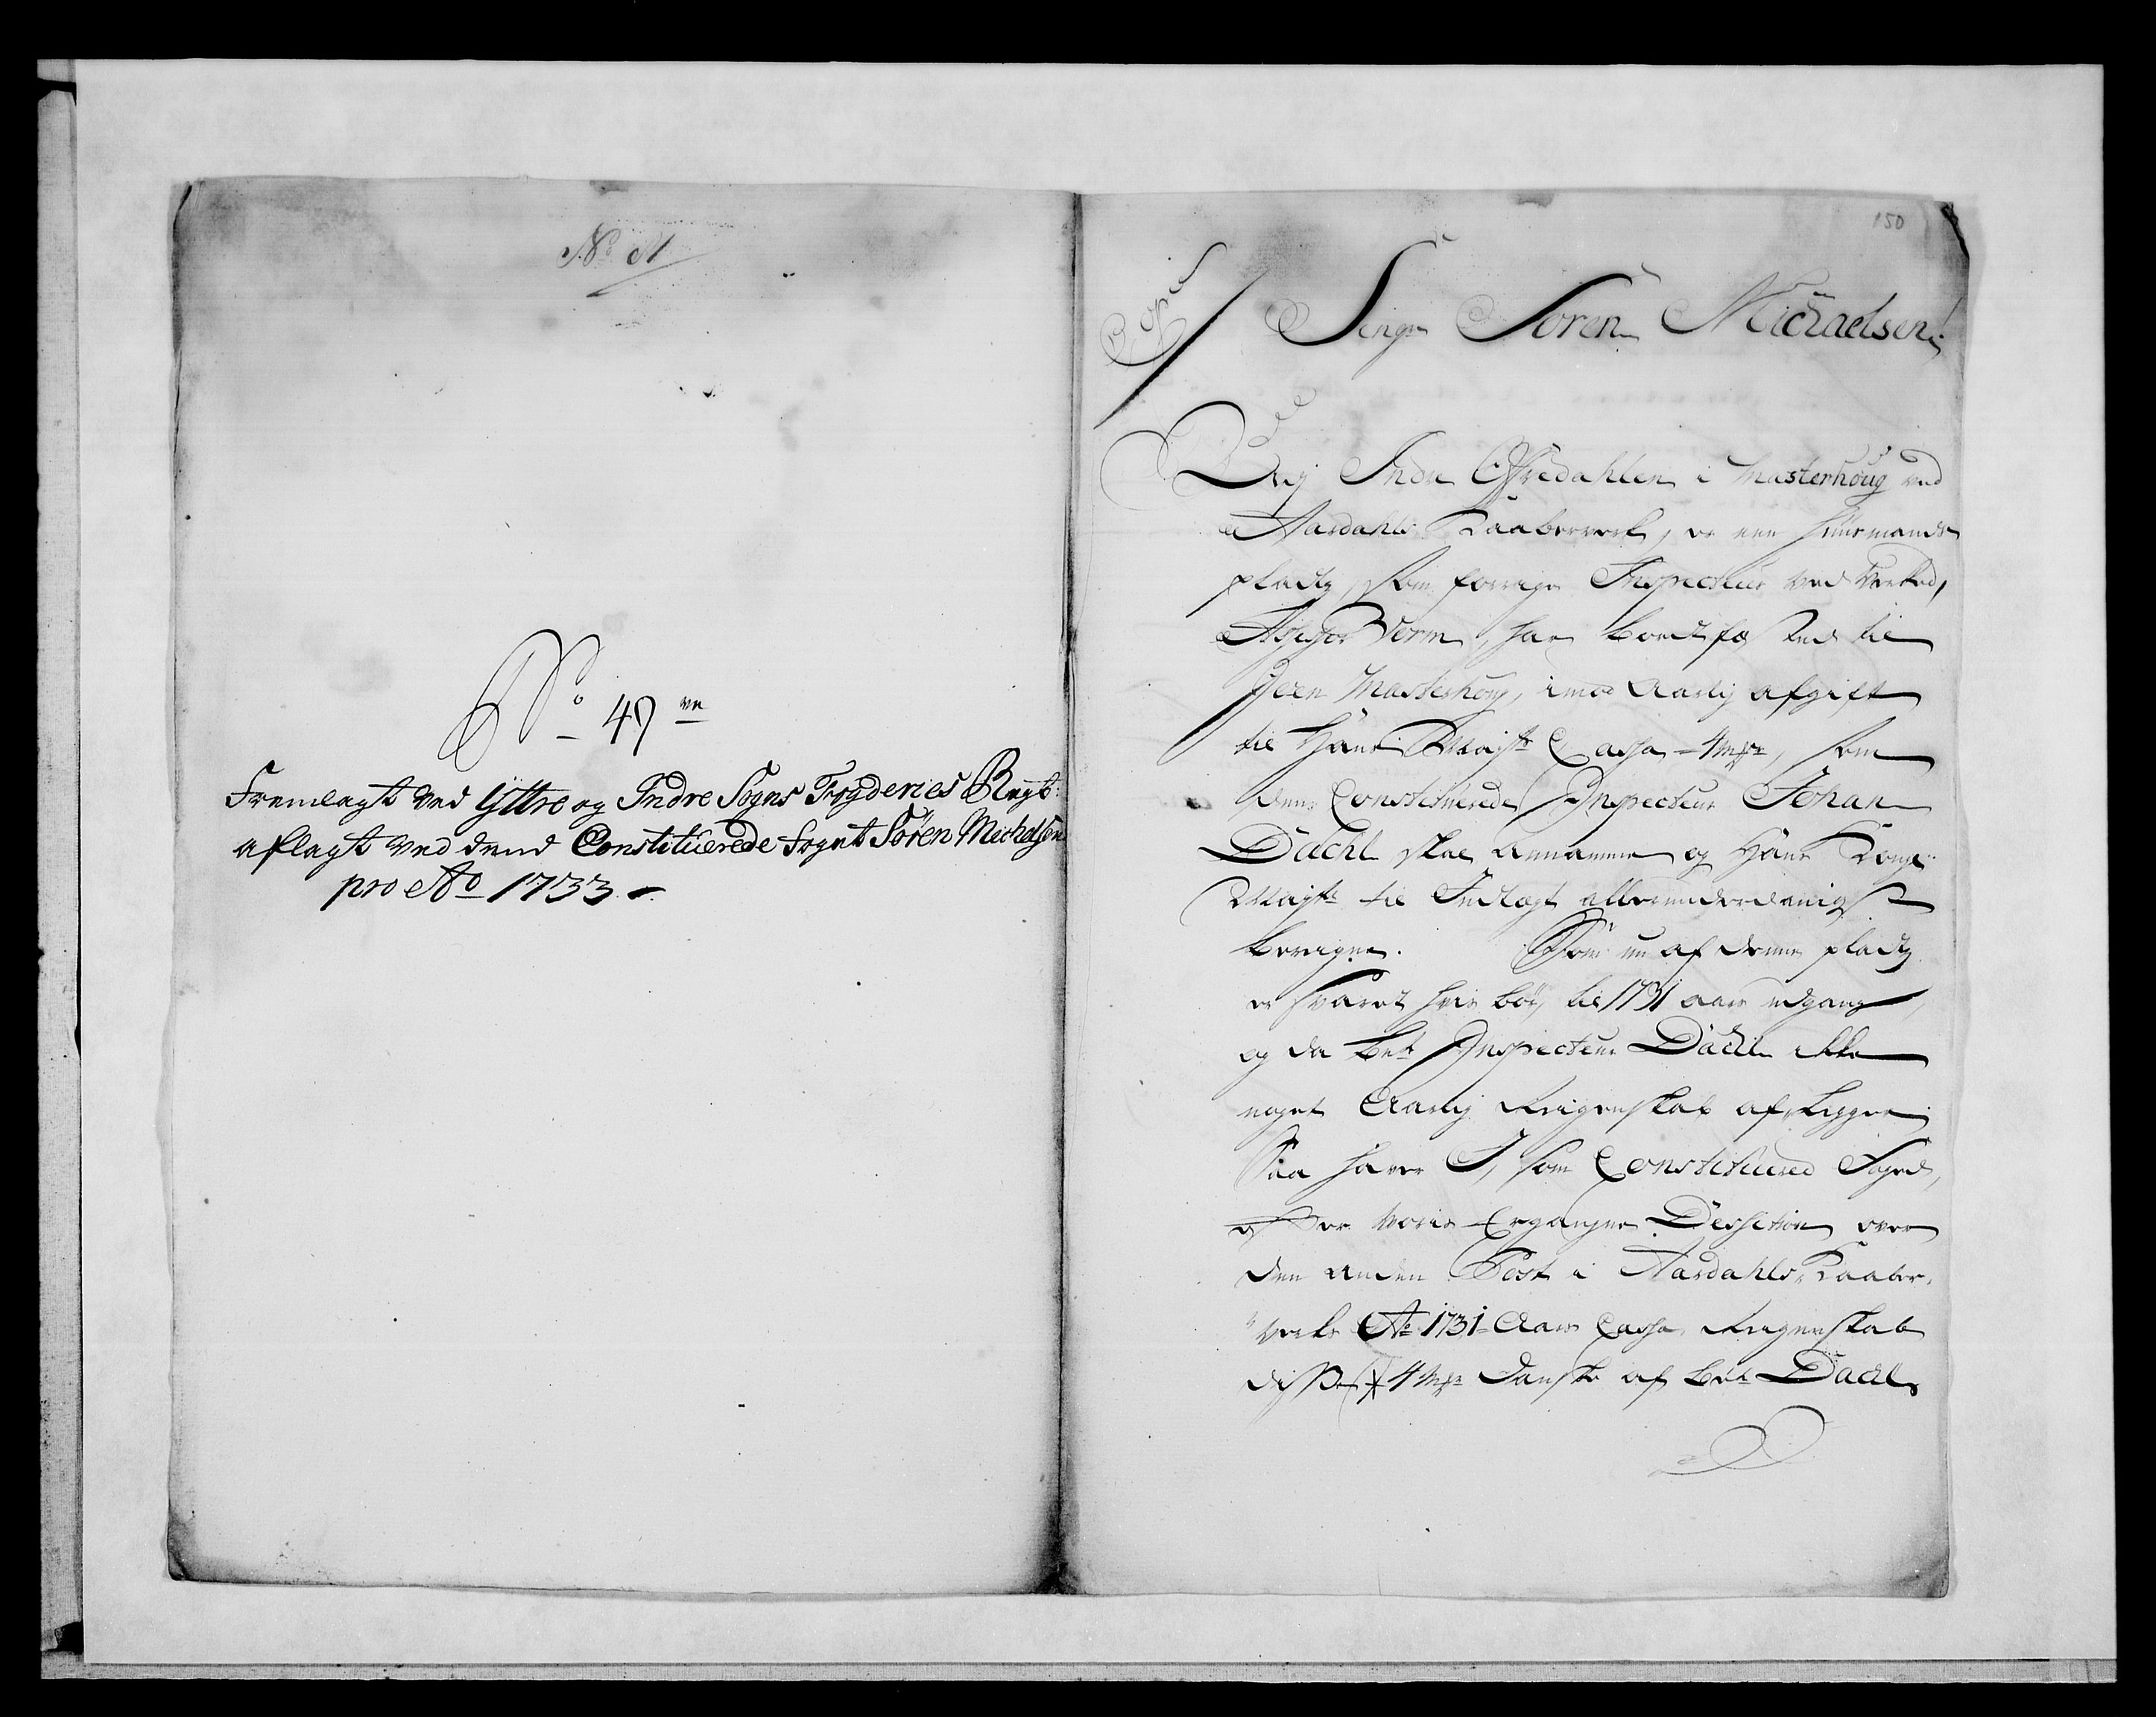 No A
No 47 ve
Fremlagt ved Ytre og Indre Sogns Fogderies Regt:
aflagt ved dend Constituerede Fogut Sören Michelsen
pro Ao 1733.
150
Copie
Seigr Soren Michaelsen!
Indre Ofredahlen i Masterhoug ved
Aardahls Kaaberverk, er een Huusmands
pladtz, som forrige Inspecteur ved Verked,
Assessor Worm, har bortfæsted til
Jeen Masterhoug, imod Aarlig afgift
til Hans Mayts Cassa 4 mk, som
den Constituerede Inspecteur Johan
Dachl skal annamme og Hans Kongl:
Mayts til Indtægt allerunderdanigst
beregne. Som nu af denne pladtz
er svaret hvis bør, til 1731 aars udgang,
og da bete Inspecteur Dachl ikke
noget Aarlig Reigenskab aflegger,
Saa haver I, som Constituered Foged,
efter voris Ergangne Dessition over
den anden Post i Aardahls Kaaber-
verks Ao 1731 Aars Cassa Reigenskab
disse 4 mk Danske af bete Dachl